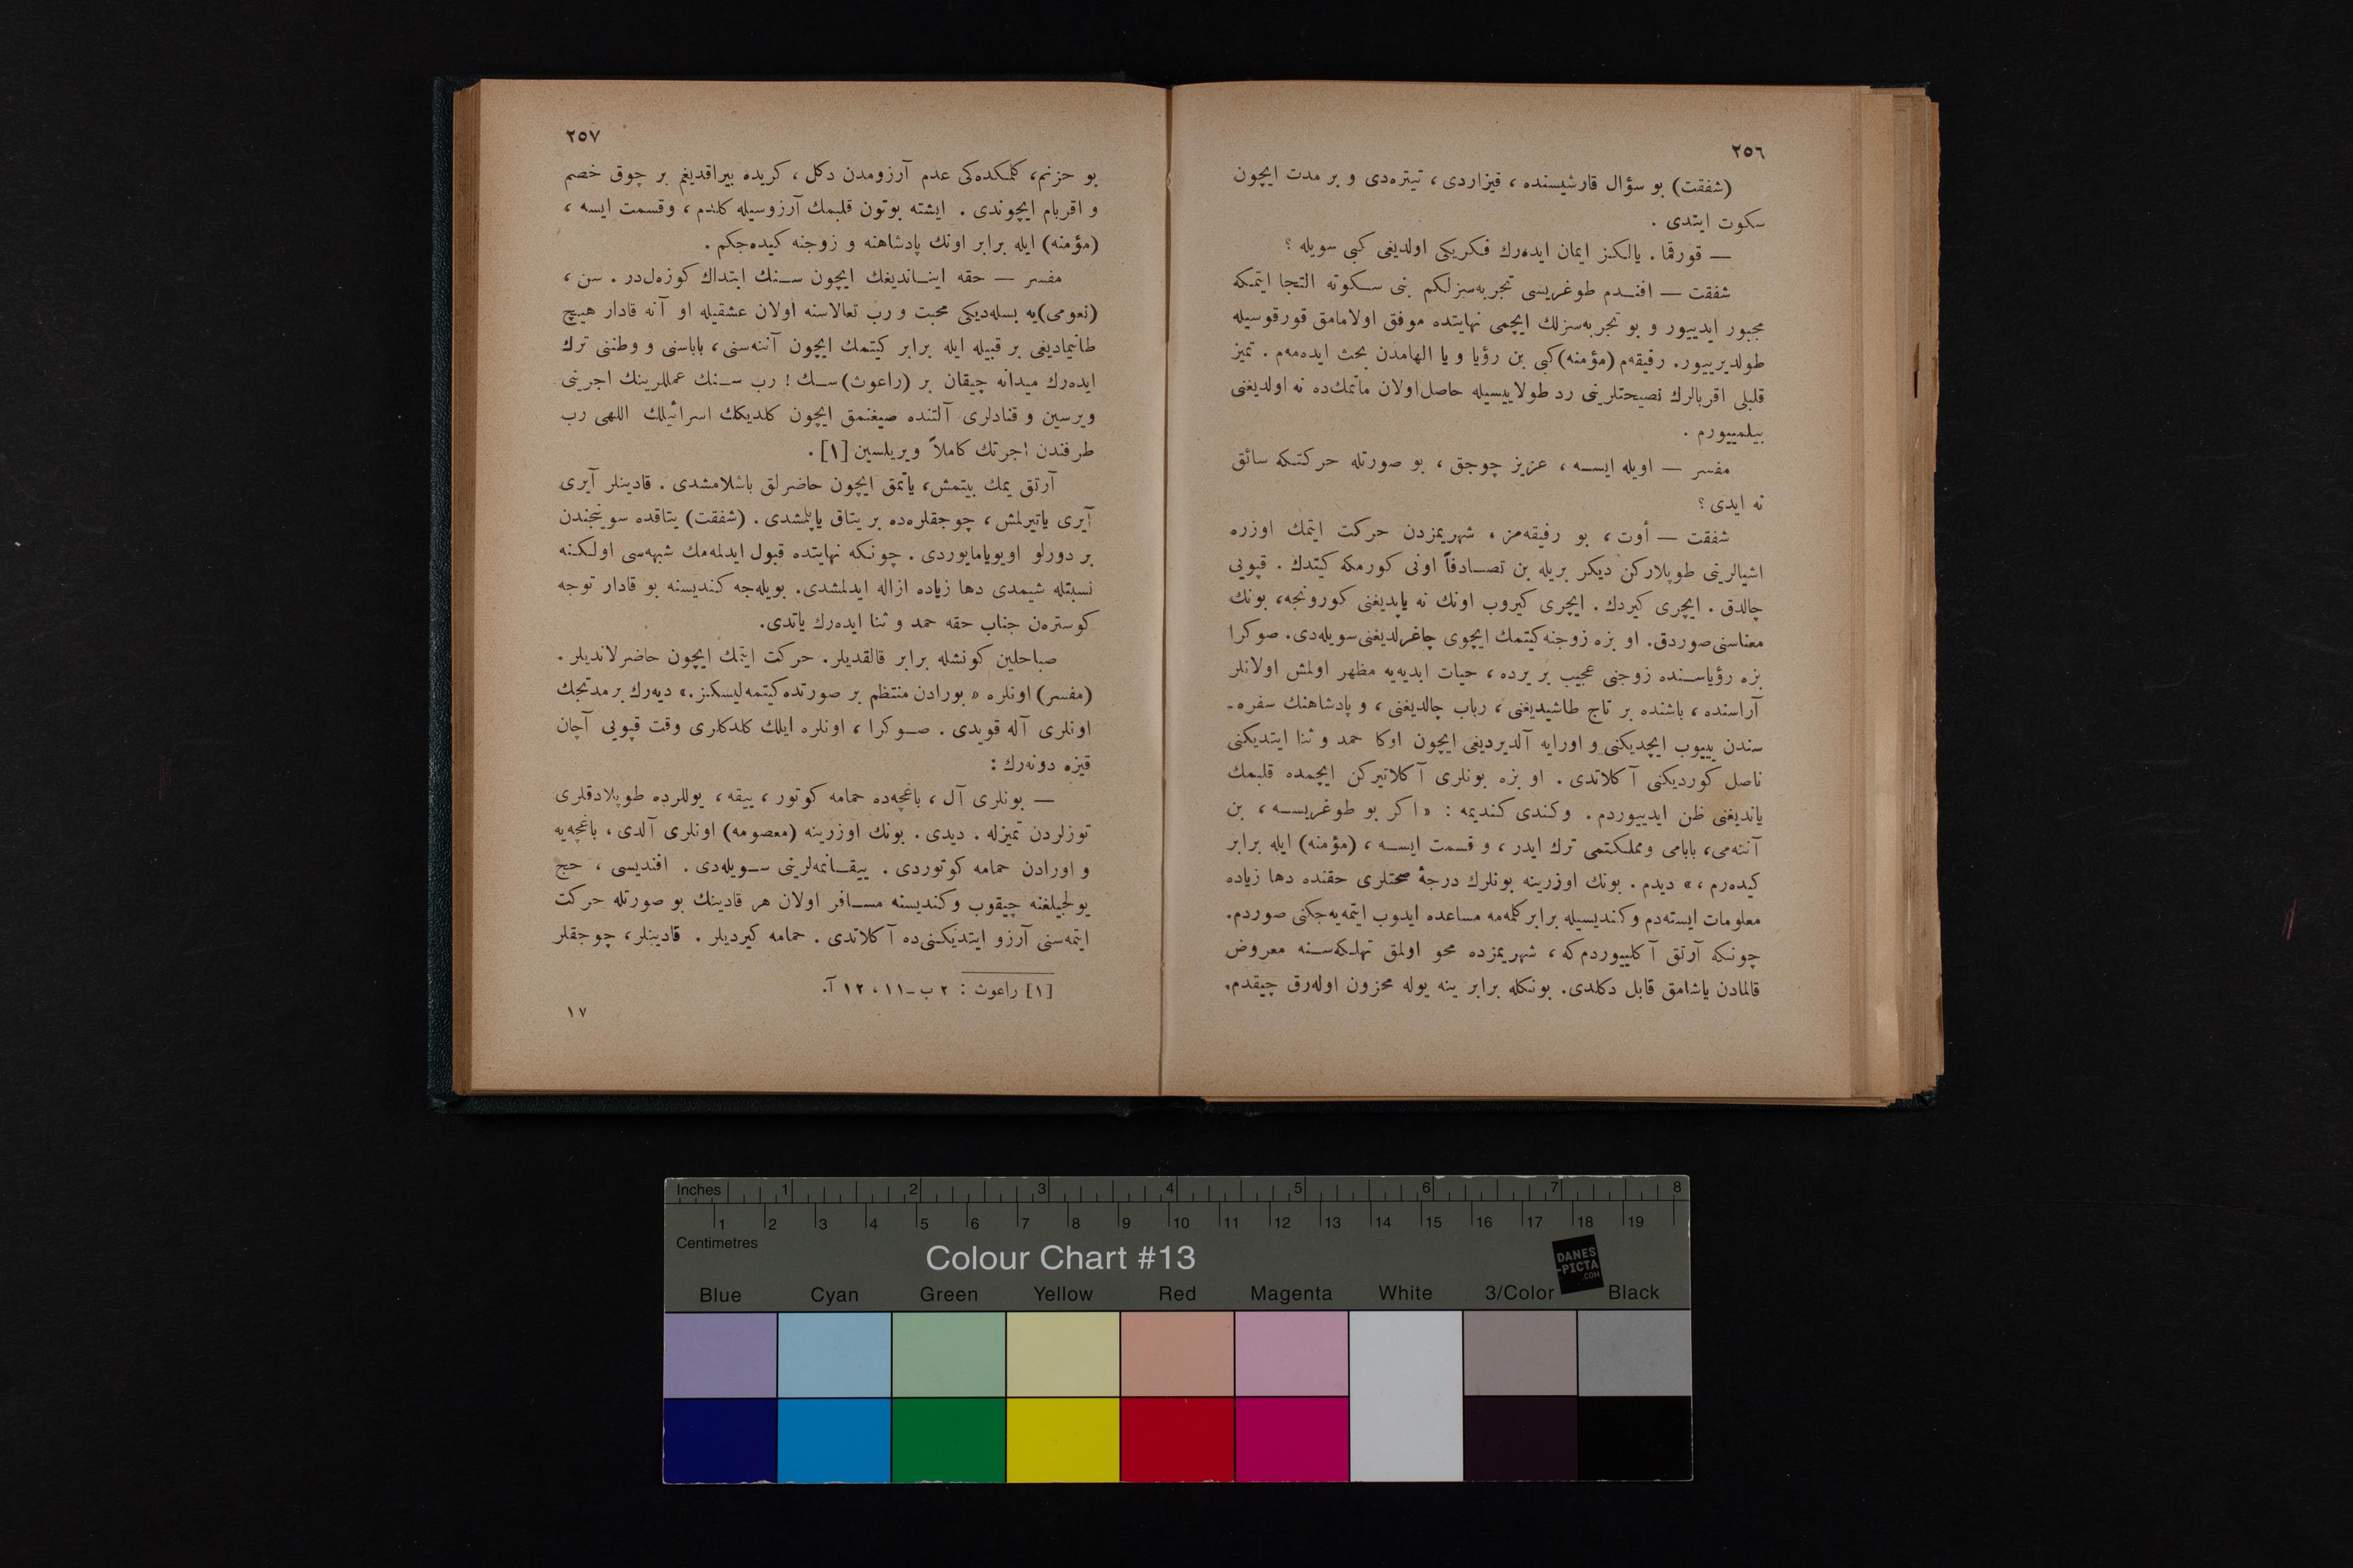 ٢٥٦
(شفقت) بو سؤال قارشیسنده ، قیزاردی ، تیتره‌دی و بر مدت ایچون
سکوت ایتدی .
— قورقما . یالکز ایمان ایده‌رك فکریکی اولدیغی کبی سویله ؟
شفقت — افندم طوغریسی تجربه‌سزلکم بنی سکوته التجا ایتمکه
مجبور ایدییور و بو تجربه‌سزلك ایچمی نهایتده موفق اولامامق قورقوسیله
طولدیرییور. رفیقه‌م (مؤمنه) کبی بن رؤیا و یا الهامدن بحث ایده‌مه‌م . تمیز
قلبلی اقربالرك نصیحتلرینی رد طولاییسیله حاصل اولان ماتمك‌ده نه اولدیغنی
بیلمییورم .
مفسر — اویله ایسه ، عزیز چوجق ، بو صورتله حرکتکه سائق
نه ایدی ؟
شفقت — أوت ، بو رفیقه‌مز ، شهریمزدن حرکت ایتمك اوزره
اشیالرینی طوپلارکن دیکر بریله بن تصادفاً اونی کورمکه کیتدك . قپویی
چالدق . ایچری کیردك . ایچری کیروب اونك نه یاپدیغنی کورونجه، بونك
معناسنی صوردق. او بزه زوجنه کیتمك ایچوی چاغرلدیغنی سویله‌دی. صوکرا
بزه رؤیاسنده زوجنی عجیب بر یرده ، حیات ابدیه‌یه مظهر اولمش اولانلر
آراسنده ، باشنده بر تاج طاشیدیغنی ، رباب چالدیغنی ، و پادشاهنك سفره‌ـ
سندن ییوب ایچدیکنی و اورایه آلدیردیغی ایچون اوکا حمد و ثنا ایتدیکنی
ناصل کوردیکنی آکلاتدی . او بزه بونلری آکلاتیرکن ایچمده قلبمك
یاندیغنی ظن ایدییوردم . وکندی کندیمه : « اکر بو طوغریسه ، بن
آننه‌می، بابامی ومملکتمی ترك ایدر ، و قسمت ایسه ، (مؤمنه) ایله برابر
کیده‌رم ، » دیدم . بونك اوزرینه بونلرك درجۀ صحتلری حقنده دها زیاده
معلومات ایسته‌دم وکندیسیله برابر کلمه‌مه مساعده ایدوب ایتمه‌یه‌جکنی صوردم.
چونکه آرتق آکلییوردم که ، شهریمزده محو اولمق تهلکه‌سنه معروض
قالمادن یاشامق قابل دکلدی. بونکله برابر ینه یوله محزون اوله‌رق چیقدم.
٢٥٧
بو حزنم، کلمکده‌کی عدم آرزومدن دکل ، کریده بیراقدیغم بر چوق خصم
و اقربام ایچوندی . ایشته بوتون قلبمك آرزوسیله کلدم ، وقسمت ایسه ،
(مؤمنه) ایله برابر اونك پادشاهنه و زوجنه کیده‌جکم .
مفسر — حقه ایناندیغك ایچون سنك ابتداك کوزه‌ل‌در . سن ،
(نعومی)یه بسله‌دیکی محبت و رب تعالاسنه اولان عشقیله او آنه قادار هیچ
طانیمادیغی بر قبیله ایله برابر کیتمك ایچون آننه‌سنی، باباسنی و وطننی ترك
ایده‌رك میدانه چیقان بر (راعوث) سك ! رب سنك عمللرینك اجرینی
ویرسین و قنادلری آلتنده صیغنمق ایچون کلدیکك اسرائیلك اللهی رب
طرفندن اجرتك کاملاً ویریلسین [١] .
آرتق یمك بیتمش، یاتمق ایچون حاضرلق باشلامشدی . قادینلر آیری
آیری یاتیرلمش ، چوجقلره‌ده بر یتاق یاپلمشدی . (شفقت) یتاقده سوینجندن
بر دورلو اویویامایوردی . چونکه نهایتده قبول ایدلمه‌مك شبهه‌سی اولکنه
نسبتله شیمدی دها زیاده ازاله ایدلمشدی. بویله‌جه کندیسنه بو قادار توجه
کوستره‌ن جناب حقه حمد و ثنا ایده‌رك یاتدی.
صباحلین کونشله برابر قالقدیلر. حرکت ایتمك ایچون حاضرلاندیلر .
(مفسر) اونلره « بورادن منتظم بر صورتده کیتمه‌لیسکز. » دیه‌رك بر مدتجك
اونلری آله قویدی . صوکرا ، اونلره ایلك کلدکلری وقت قپویی آچان
قیزه دونه‌رك :
— بونلری آل ، باغچه‌ده حمامه کوتور ، ییقه ، یوللرده طوپلادقلری
توزلردن تمیزله . دیدی . بونك اوزرینه (معصومه) اونلری آلدی ، باغچه‌یه
و اورادن حمامه کوتوردی . ییقانمه‌لرینی سویله‌دی . افندیسی ، حج
یولجیلغنه چیقوب وکندیسنه مسافر اولان هر قادینك بو صورتله حرکت
ایتمه‌سنی آرزو ایتدیکنی‌ده آکلاتدی . حمامه کیردیلر . قادینلر، چوجقلر
[١] راعوث : ٢ ب ــ ١١ ، ١٢ آ.
١٧
Inches 1 2 3 4 5 6 7 8
1 2 3 4 5 6 7 8 9 10 11 12 13 14 15 16 17 18 19
Centimetres
Colour Chart #13
DANES
-PICTA
.COM
Blue Cyan Green Yellow Red Magenta White 3/Color Black